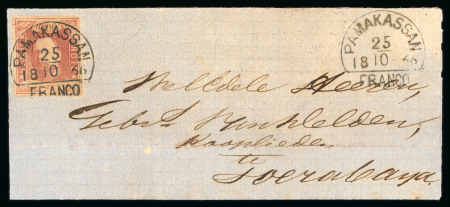 PAMAKASSAN
25
18 10 66
FRANCO
PAMAKASSAN
25
18 10 66
FRANCO
Weledele Heeren,
Gebr.
Kooplieden
te
Soerabaya